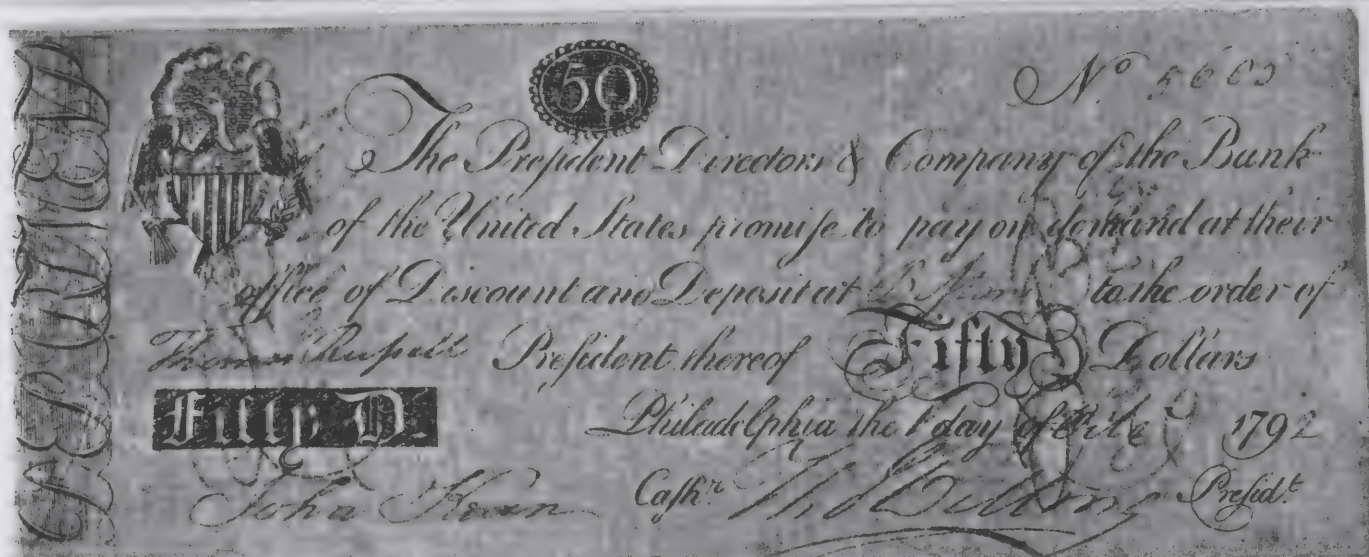 50
Nº 5603
The Preſident Directors & Company of the Bank
of the United States promiſe to pay on demand at their
office of Discount and Deposit at to the order of
Thomas Ruſsell Preſident thereof Fifty Dollars
Fifty D.
Philadelphia the 1 day of 1792
John Kean Caſhr. Preſidt.